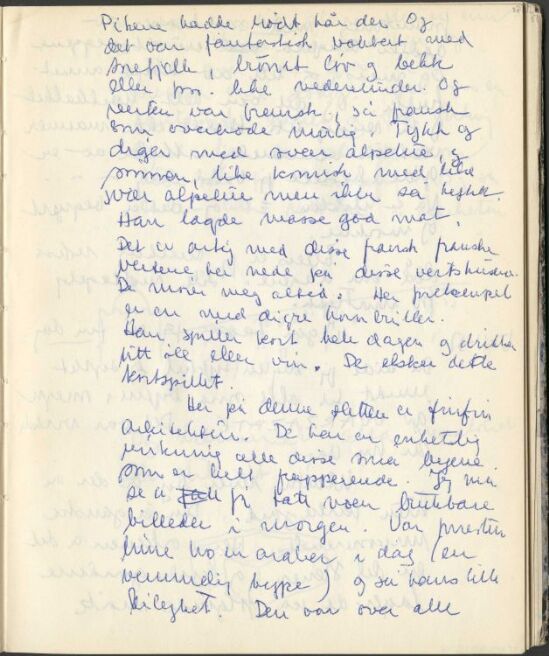 Pikene hadde rødt hår der. Og
det var fantastisk vakkert med
snefjell, brönst løv og bekk
eller pro. like nedenunder. Og
verten var fransk, så fransk
som overhode mulig. Tykk og
diger med svær alpelue, og
sönnen like komisk med like
svær alpelue men ikke så tykk.
Han lagde masse god mat.
Det er artig med disse fransk franske
vertene her nede på disse vertshusene.
De morer meg altså. Her for eksempel
er en med digre hornbriller.
Han spiller kort hele dagen og drikker
litt öll eller vin. De elsker dette
kortspillet.
Her på denne sletten er finfin
arkitektur. De har en enhetlig
virkning alle disse små byene
som er helt frapperende. Jeg må
se å få tatt noen brukbare
billeder i morgen. Var forresten
inne hos en araber i dag (en
vemmelig type) og så hans lille
leilighet. Den var over alle